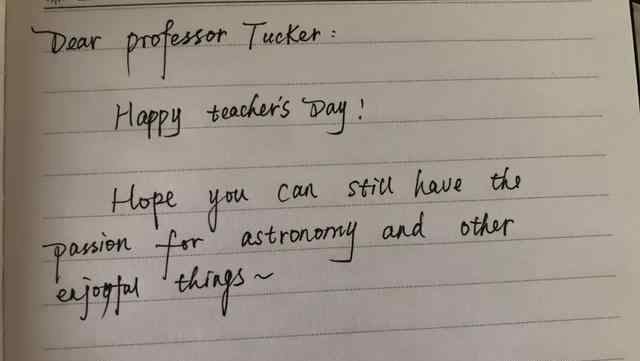 Dear professor Tucker:
Happy teacher's Day!
Hope you can still have the
passion for astronomy and other
enjoyful things~